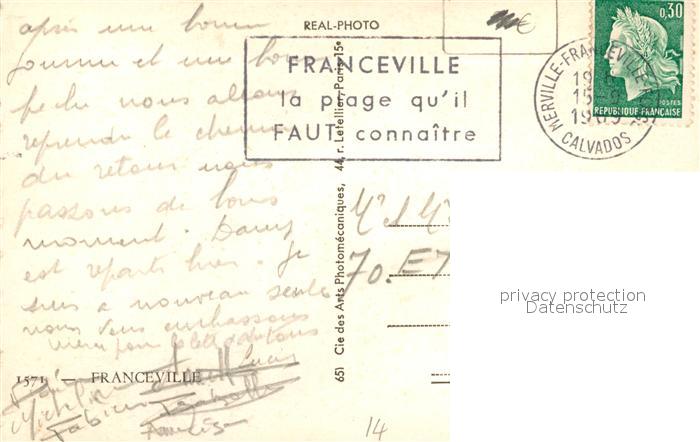 REAL-PHOTO
€
0,30
POSTES
REPUBLIQUE FRANÇAISE
MERVILLE-FRANCEVILLE
CALVADOS
FRANCEVILLE
la plage qu'il
FAUT connaître
après une bonne
journée et une bonne
peche nous allons
reprendre le chemin
du retour nous
passons de bons
moment. Dany
est reparti hier. Je
suis a nouveau seule
nous vous embrassons
merci pour
Mr et Mr
70.
1571 — FRANCEVILLE
Micheline
Fabienne
651 Cie des Arts Photomécaniques, 44, r. Letellier-Paris 15e
14
privacy protection
Datenschutz